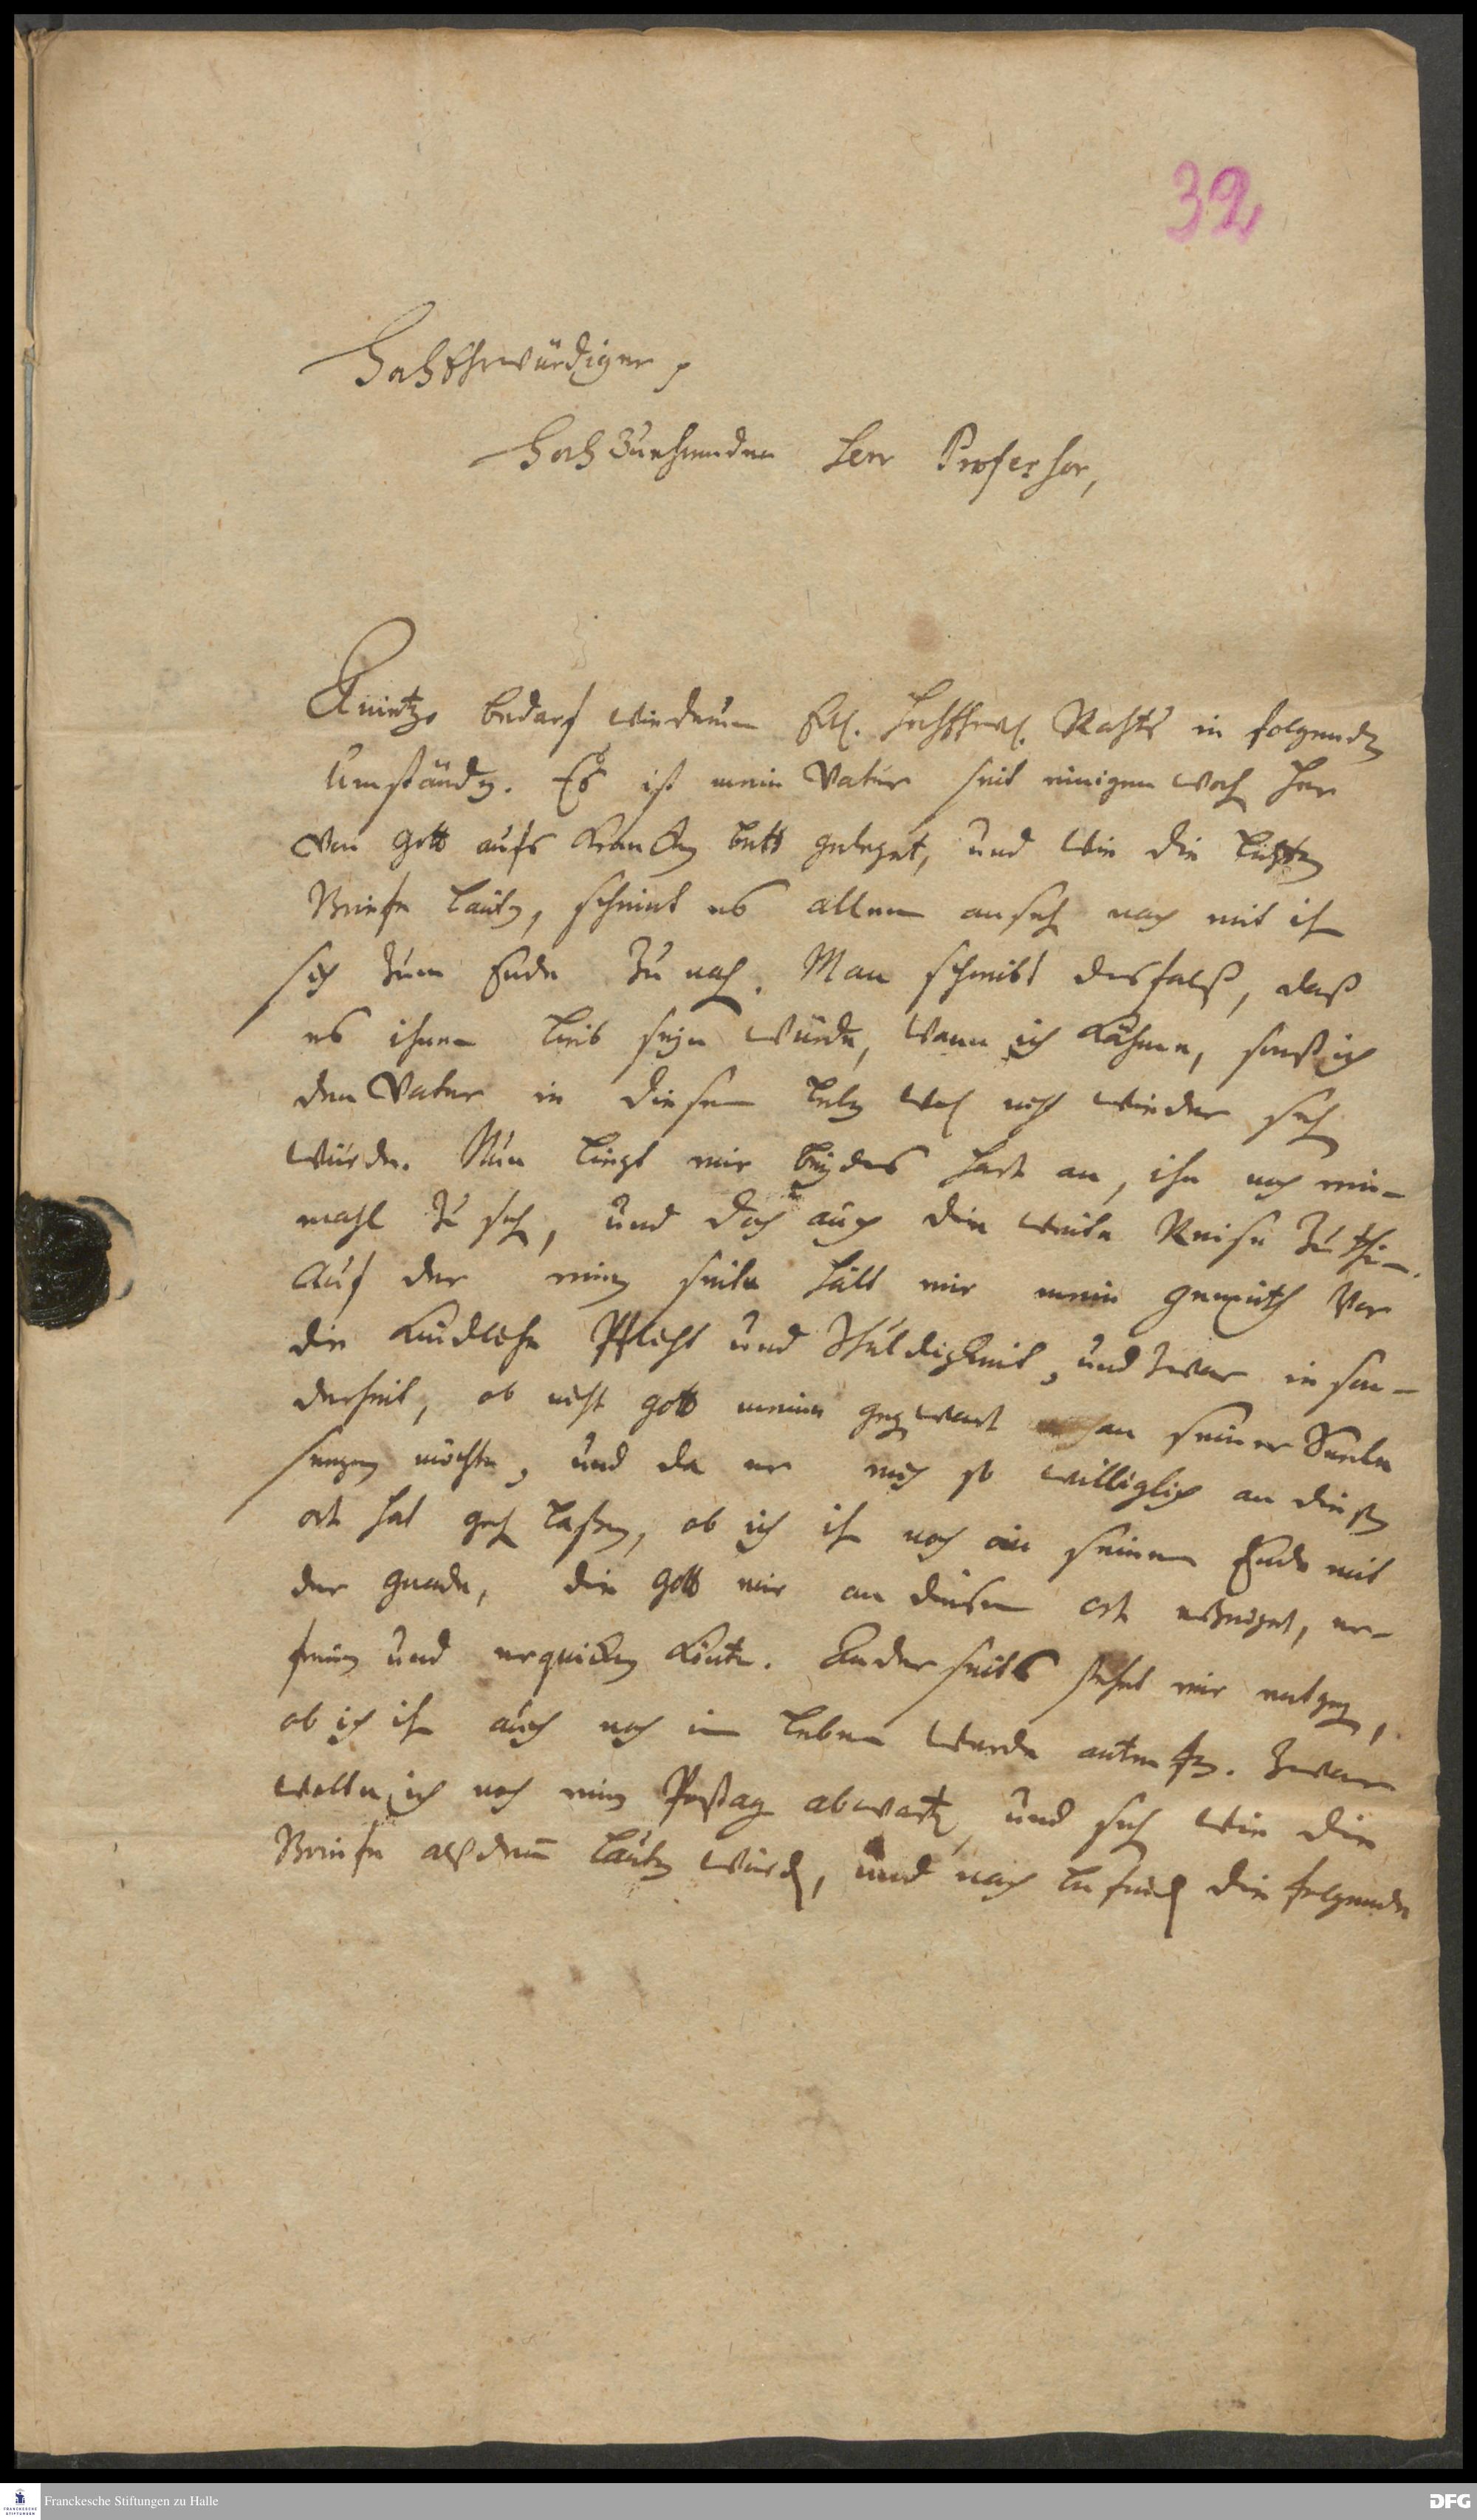 32
HochEhrwürdiger,
HochZuehrender Herr Professor,
Anietzo bedarf wiederum Ew. HochEhrw. Rahts in folgenden
Umständen. Es ist mein Vater seit einigen Wochen her
von Gott aufs Krancken bett geleget, und wie die letzten
Briefe lauten, scheint es allem ansehen nach mit ihm
sich zum Ende zu nahen. Man schreibt desfalß, daß
es ihnen lieb seyn würde, wenn ich kähme, sonst ich
den Vater in diesem Leben wohl nicht wieder sehen
würde. Nun liegt mir beydes hart an, ihn noch ein-
mahl zu sehen, und doch auch die weite Reise zu thun.
Auf der einen seite hält mir mein gemüth vor
die Kindliche Pflicht und Schuldigkeit, und zwar in son-
derheit, ob nicht Gott meine gegenwart an seiner Seelen
seegnen möchte, und da er mich so williglich an diesen
ort hat gehen laßen, ob ich ihn noch an seinem Ende mit
der gnade, die Gott mir an diesem ort erzeiget, er-
freuen und erquicken könte. Anderseits stehet mir entgegen,
ob ich ihn auch noch im Leben werde antreffen. Zwar
wolte ich noch einen Posttag abwarten, und sehen wie die
Briefe alßdenn lauten würden, und nach befinden die folgende
Franckesche Stiftungen zu Halle
DFG